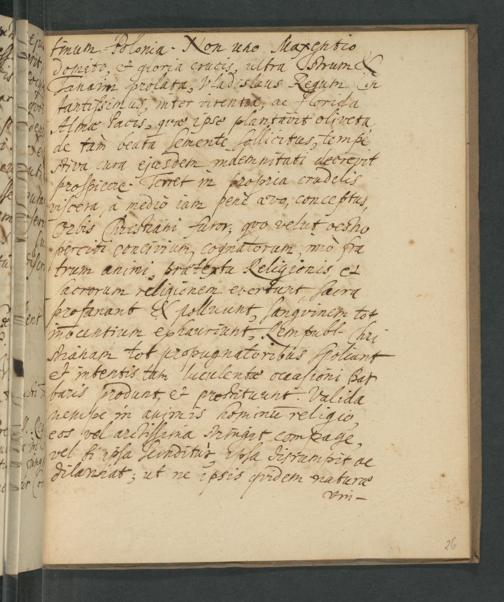 tinum Polonia. Non uno Maxentio
domito, et gloria crucis, ultra Istrum &
Tanaim prolata, Vladislaus Regum in
tantissimus, inter virentia, ac florida
Almæ Pacis, quæ ipse plantavit oliveta
de tam beata semente sollicitus, tempe
stiva cura ejusdem indemnitati decrevit
prospicere. Terret in propria crudelis
viscera, a medio iam pene ævo, conceptus,
Orbis Christiani furor, quo velut oestro
perciti concivium, cognatorum, imo fra
trum animi, prætextu Religionis et
sacrorum religionem evertunt, sacra
profanant & polluunt, sanguinem tot
innocentium exhauriunt, Rempubl. Chri
stianam tot propugnatoribus spoliant
et intentis tam luculentæ occasioni Bar
baris produnt et prostituunt. Valida
nempe in animis hominum religio
eos vel arctissima stringit compage,
vel si ipsa scinditur, ipsa disrumpit ac
dilaniat; ut ne ipsis quidem naturæ
vin-
26